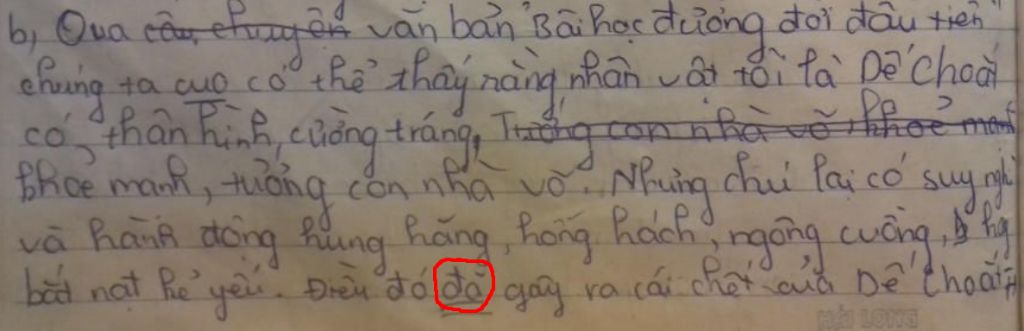 b, Qua câu chuyện văn bản "Bài học đường đời đầu tiên"
chúng ta cuo có thể thấy rằng nhân vật tôi là Dế Choắt
có thân hình cường tráng, Tướng con nhà võ, khoẻ mạnh
khoẻ mạnh, tướng con nhà võ. Nhưng chú lại có suy nghĩ
và hành động hung hăng, hống hách, ngông cuồng,
bắt nạt kẻ yếu. Điều đó đã gây ra cái chết của Dế Choắt
HẢI LONG